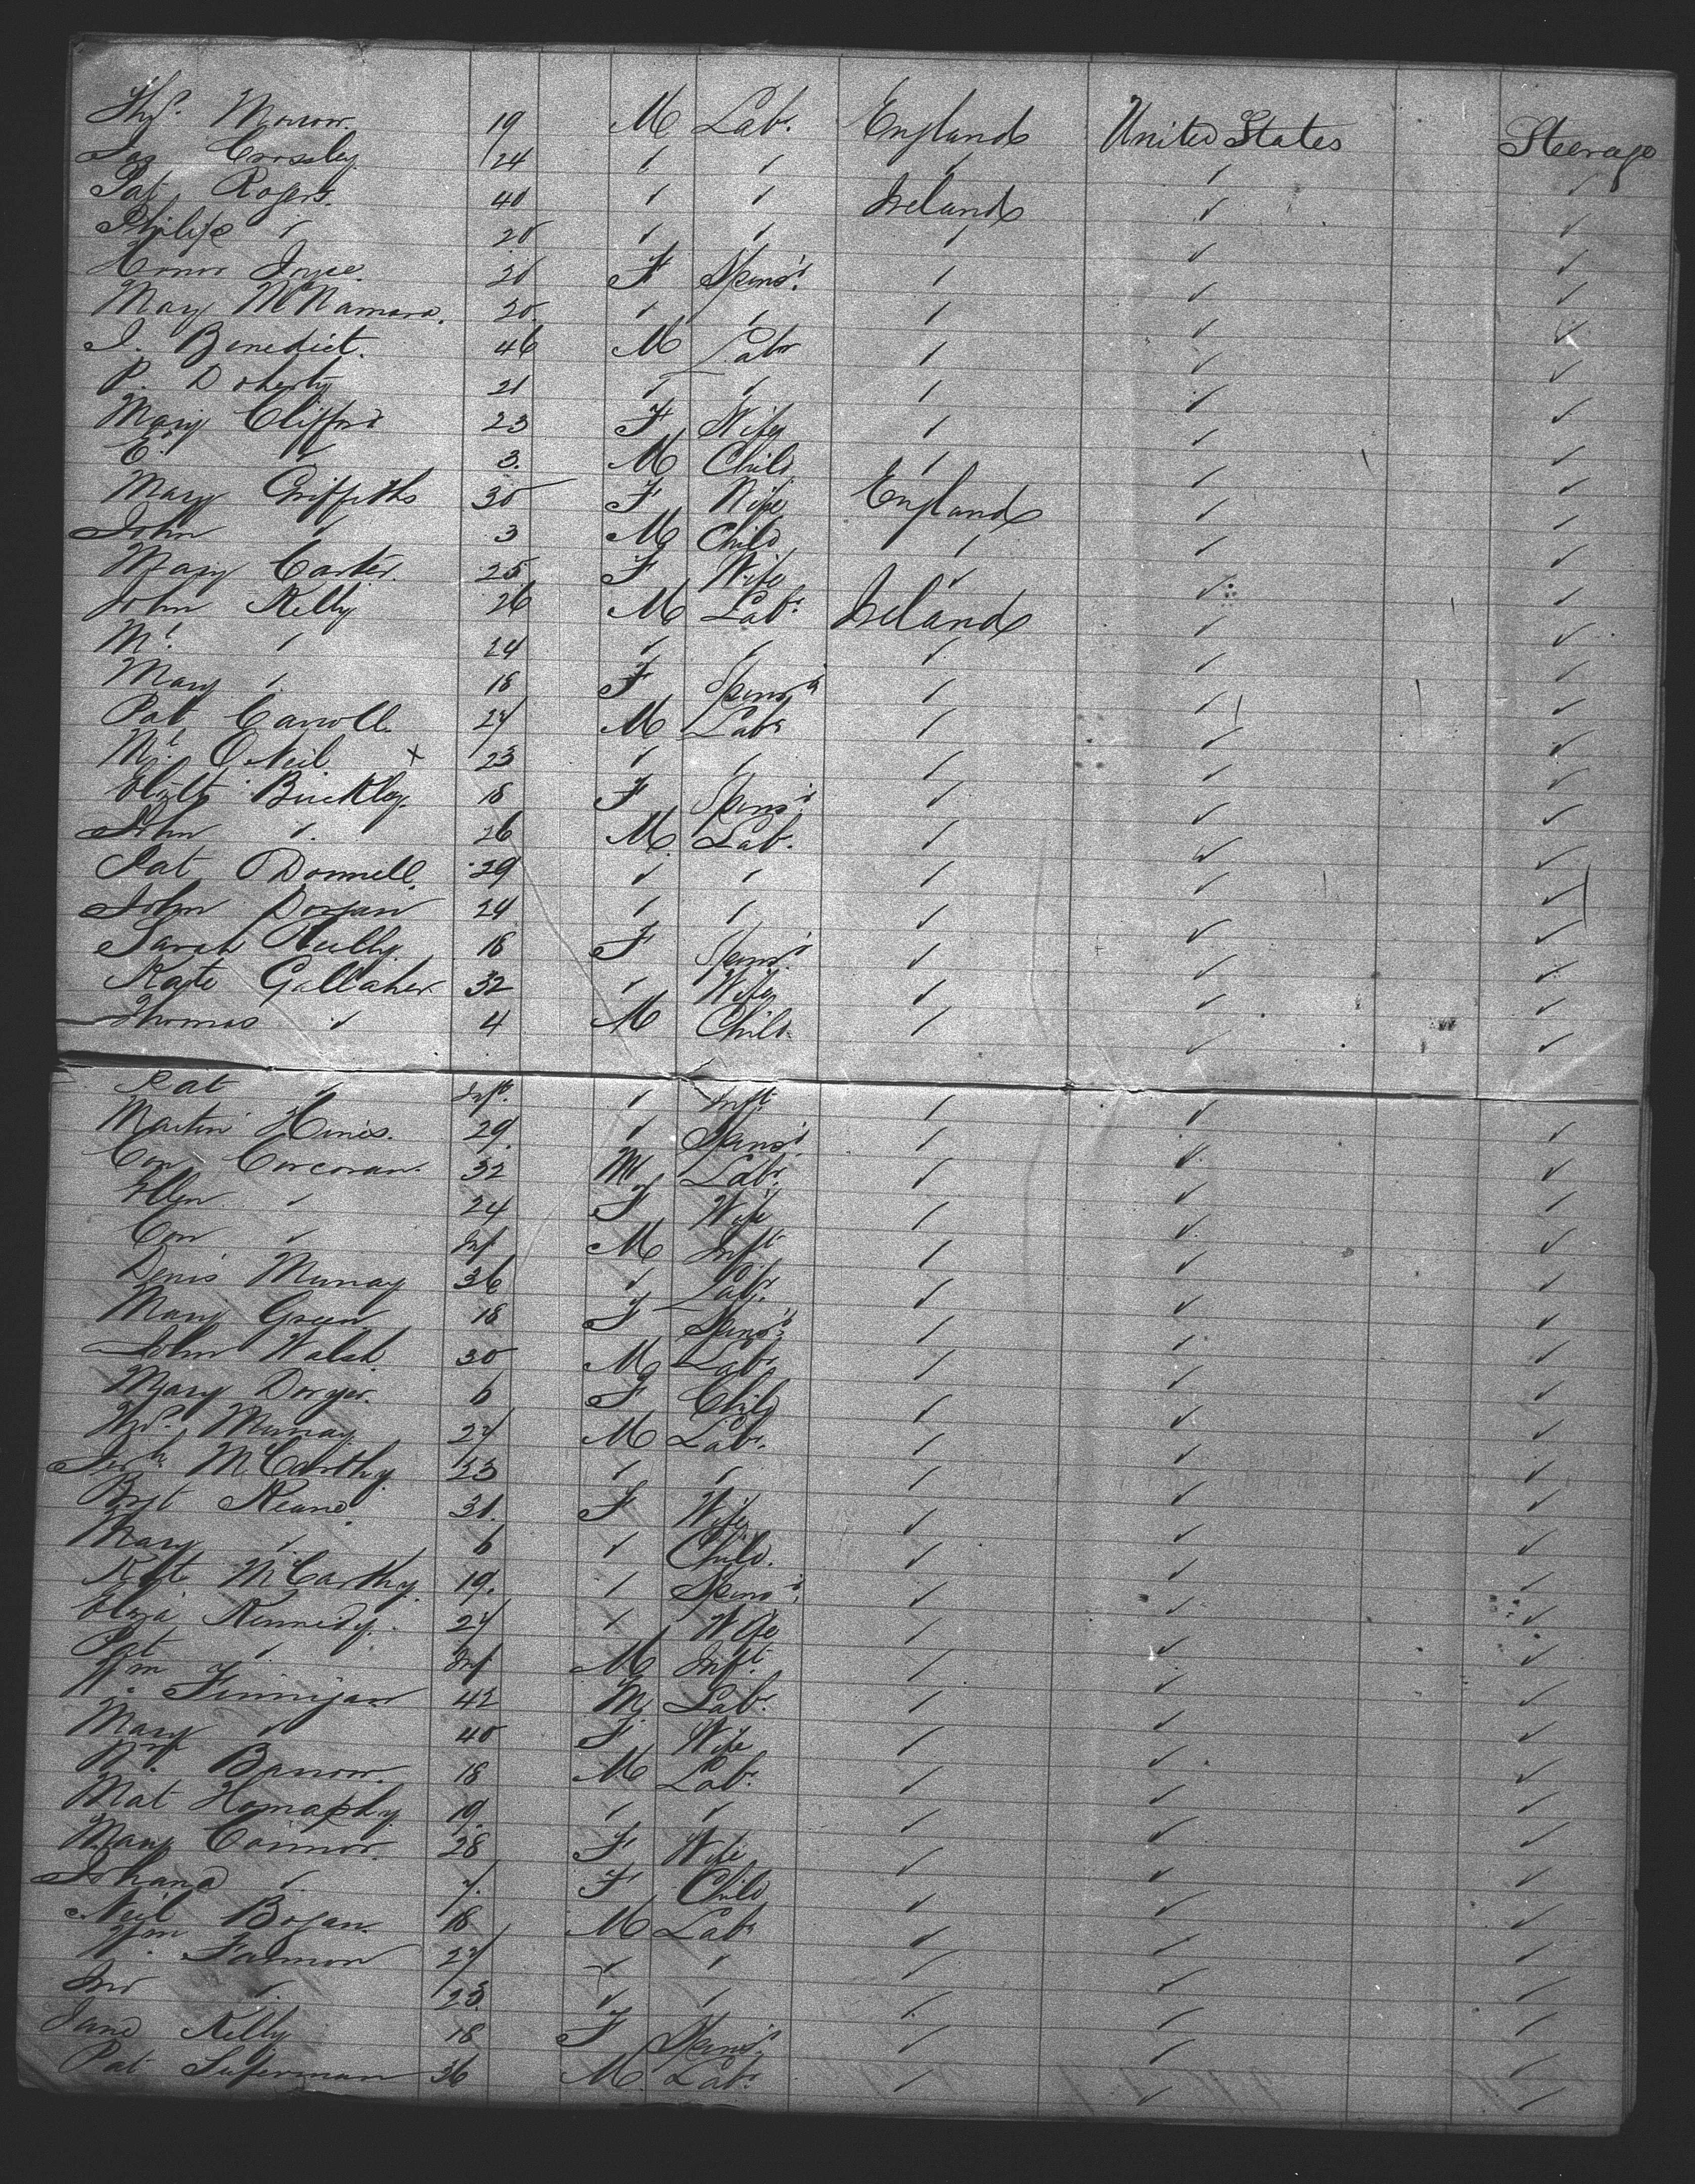 Thos. Morrow. 19 M Labr. England United States Steerage
Jas Crossley 24 ✓ ✓ ✓ ✓ ✓
Pat Rogers. 40 ✓ ✓ Ireland ✓ ✓
Philip ✓ 20 ✓ ✓ ✓ ✓ ✓
Honor Joyce 21 F Spinsr. ✓ ✓ ✓
Mary McNamara. 20. ✓ ✓ ✓ ✓ ✓
J. Benedict. 46 M Labr ✓ ✓ ✓
P. Doherty 21 ✓ ✓ ✓ ✓ ✓
Mary Clifford 23 F Wife ✓ ✓ ✓
E. ✓ 3. M Child ✓ ✓ ✓
Mary Griffiths 30 F Wife England ✓ ✓
John ✓ 3 M Child ✓ ✓ ✓
Mary Carter. 25 F Wife ✓ ✓ ✓
John Kelly 26 M Labr. Ireland ✓ ✓
Ml. ✓ 24 ✓ ✓ ✓ ✓ ✓
Mary ✓ 18 F Spinsr ✓ ✓ ✓
Pat Carroll. 27 M Labr ✓ ✓ ✓
Ml. ONeil x 23 ✓ ✓ ✓ ✓ ✓
Buckley. 18 F Spinsr ✓ ✓ ✓
John ✓ 26 M. Labr. ✓ ✓ ✓
Pat ODonnell. 29 ✓ ✓ ✓ ✓ ✓
John Dorgan 24 ✓ ✓ ✓ ✓ ✓
Sarah Reilly. 18 F Spinsr. ✓ ✓ ✓
Kate Gallaher 32 ✓ Wife ✓ ✓ ✓
Thomas ✓ 4 M Child. ✓ ✓ ✓
Pat ✓ Inft. ✓ Inft. ✓ ✓ ✓
Martin Hines. 29. ✓ Spinsr. ✓ ✓ ✓
Con Corcoran. 32 M Labr. ✓ ✓ ✓
Ellen ✓ 24 F Wife ✓ ✓ ✓
Con ✓ Inf M Inft ✓ ✓ ✓
Denis Murray 36 ✓ Labr. ✓ ✓ ✓
Mary Green 18 F Spinsr. ✓ ✓ ✓
John Walsh 30 M Labr ✓ ✓ ✓
Mary Dwyer. 6 F Child ✓ ✓ ✓
Murray 27 M Labr. ✓ ✓ ✓
Jerh McCarthy. 23 ✓ ✓ ✓ ✓ ✓
Brgt Keane. 31. F Wife ✓ ✓ ✓
Mary ✓ 6 ✓ Child. ✓ ✓ ✓
Kate McCarthy. 19. ✓ Spinsr. ✓ ✓ ✓
Eliza Kennedy. 27 ✓ Wife ✓ ✓ ✓
Pat ✓ Inf M Inft. ✓ ✓ ✓
Wm. Finnigan 42 M Labr. ✓ ✓ ✓
Mary ✓ 40 F Wife ✓ ✓ ✓
Barrow. 18 M Labr. ✓ ✓ ✓
Mat 19. ✓ ✓ ✓ ✓ ✓
Mary Connor. 28 F Wife ✓ ✓ ✓
Johana ✓ 7. F Child ✓ ✓ ✓
Neil Bogan. 18 M Labr ✓ ✓ ✓
Wm. 27 ✓ ✓ ✓ ✓ ✓
Jno ✓ 23. ✓ ✓ ✓ ✓ ✓
Jane Kelly 18 F Spinsr. ✓ ✓ ✓
Pat 36 M. Labr. ✓ ✓ ✓